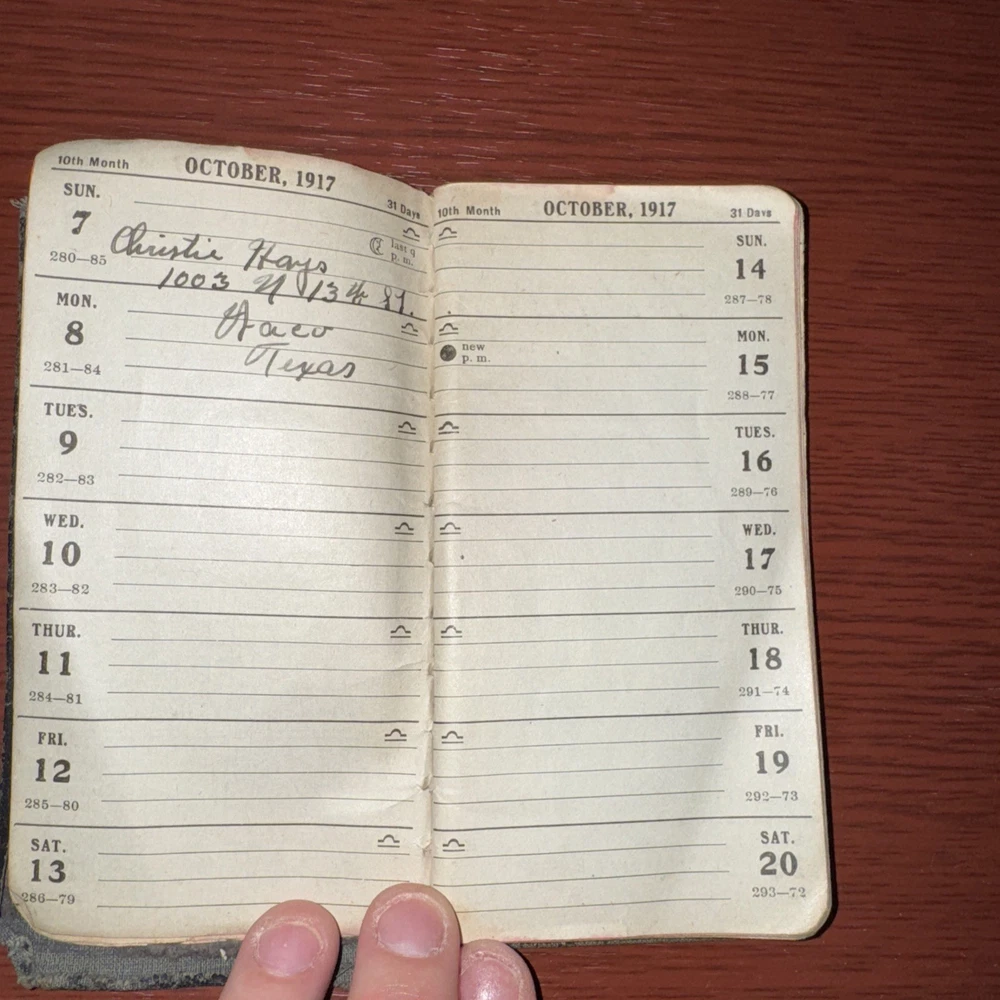 10th Month OCTOBER, 1917 31 Days
SUN.
7
280—85
last q
p. m.
Christie Hays
1003 N 13th St.
MON.
8
281—84
Waco
Texas
TUES.
9
282—83
WED.
10
283—82
THUR.
11
284—81
FRI.
12
285—80
SAT.
13
286—79
10th Month OCTOBER, 1917 31 Days
SUN.
14
287—78
new
p. m.
MON.
15
288—77
TUES.
16
289—76
WED.
17
290—75
THUR.
18
291—74
FRI.
19
292—73
SAT.
20
293—72